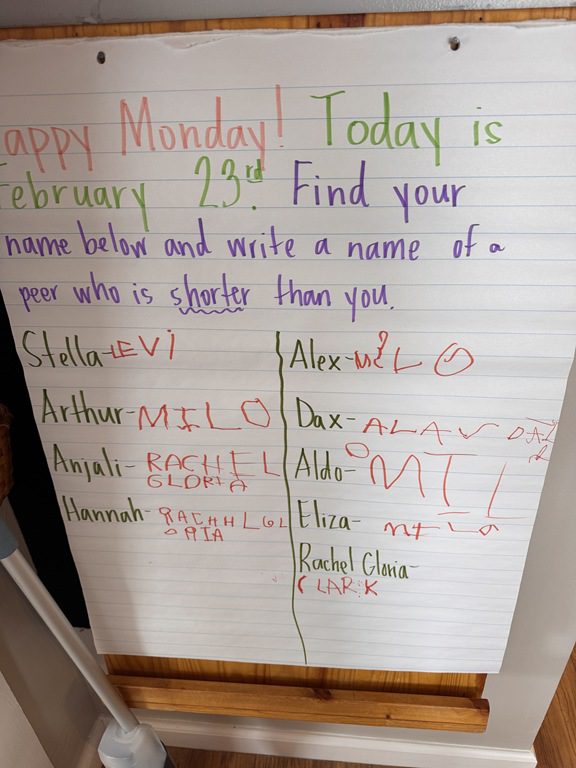 appy Monday! Today is
February 23rd. Find your
name below and write a name of a
peer who is shorter than you.
Stella- LEVI
Arthur- MILO
Anjali- RACHEL
GLORIA
Hannah- RACHHLGL
ORIA
Alex- MILO
Dax- ALAV
Aldo- MIL
O
Eliza- MILO
Rachel Gloria-
CLARK